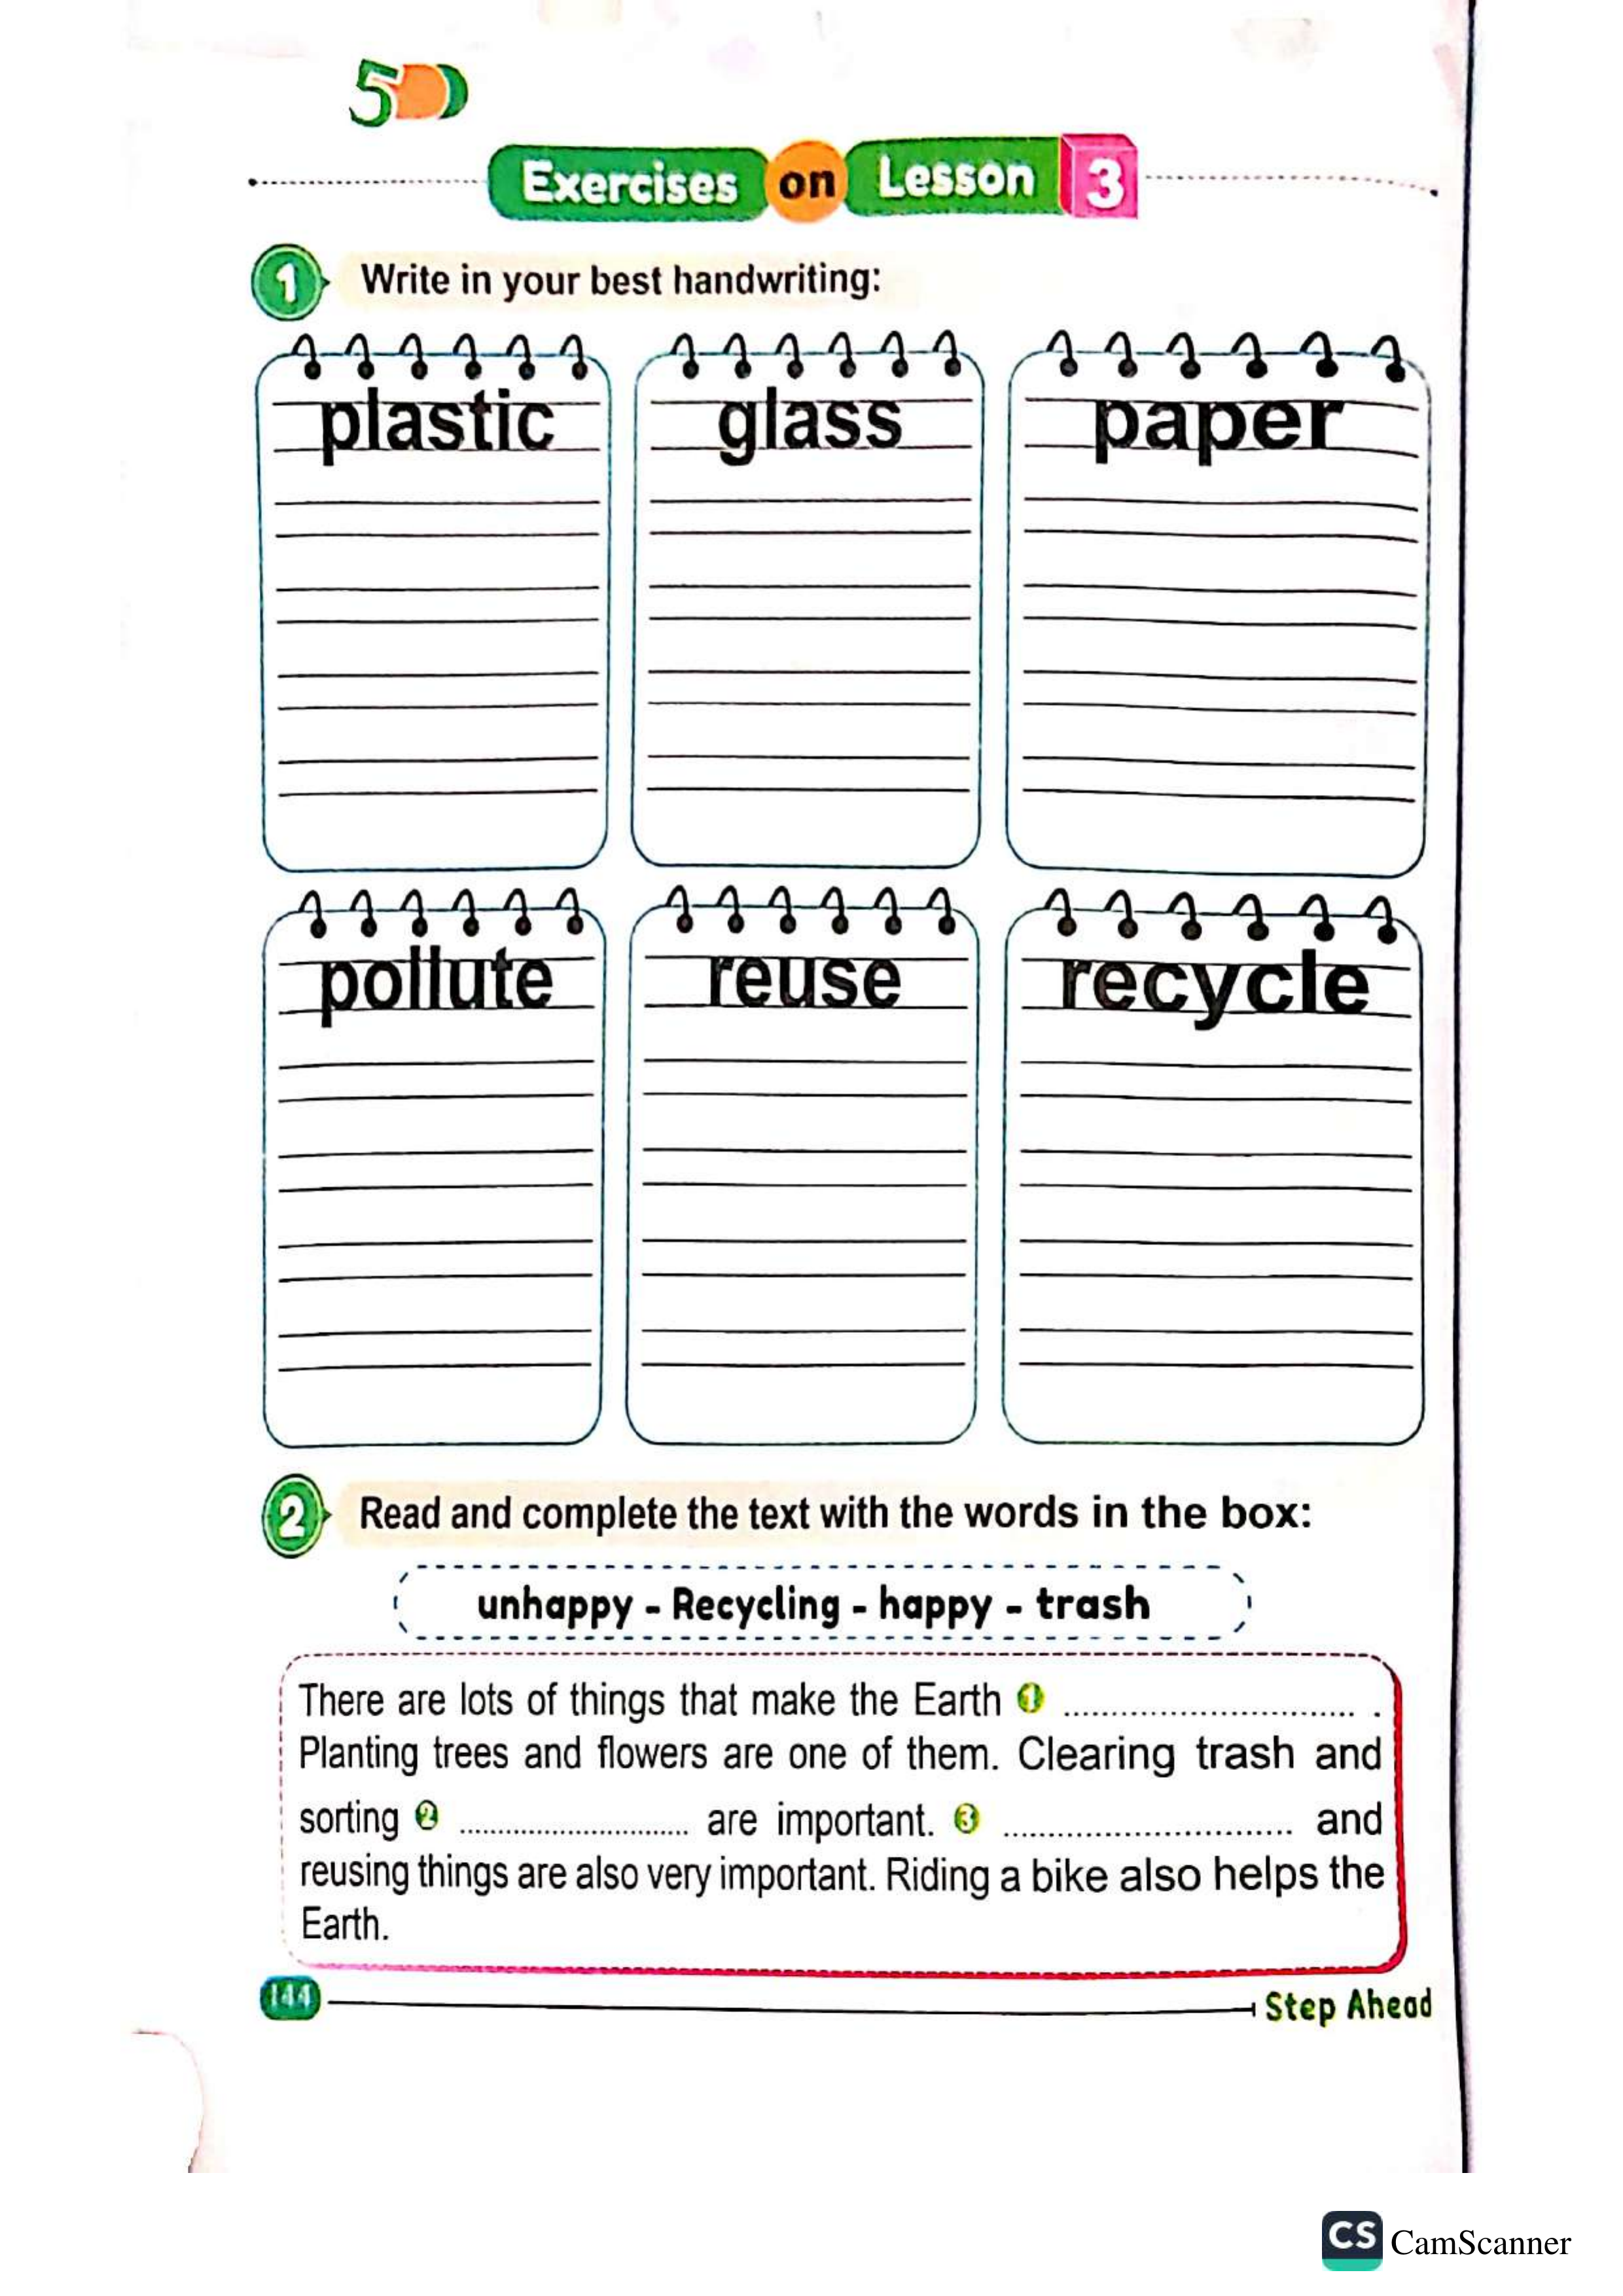 5
Exercises on Lesson 3
1 Write in your best handwriting:
plastic glass paper
pollute reuse recycle
2 Read and complete the text with the words in the box:
unhappy - Recycling - happy - trash
There are lots of things that make the Earth 1 .............................. .
Planting trees and flowers are one of them. Clearing trash and
sorting 2 .............................. are important. 3 .............................. and
reusing things are also very important. Riding a bike also helps the
Earth.
144 Step Ahead
CS CamScanner